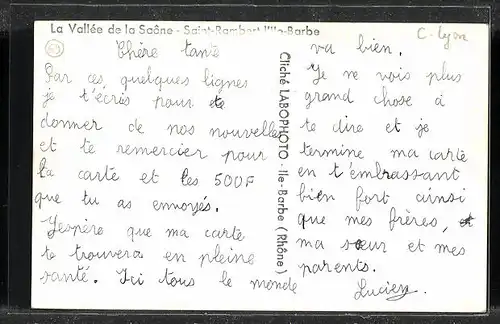 La Vallée de la Saône - Saint-Rambert l'Ile-Barbe
C-Lyon
69
Chère tante
Par ces quelques lignes
je t'écris pour te
donner de nos nouvelles
et te remercier pour
la carte et les 500F
que tu as envoyés.
J'espère que ma carte
te trouvera en pleine
santé. Ici tous le monde
Cliché LABOPHOTO - Ile-Barbe (Rhône)
va bien.
Je ne vois plus
grand chose à
te dire et je
termine ma carte
en t'embrassant
bien fort ainsi
que mes frères, et
ma sœur et mes
parents.
Lucien.